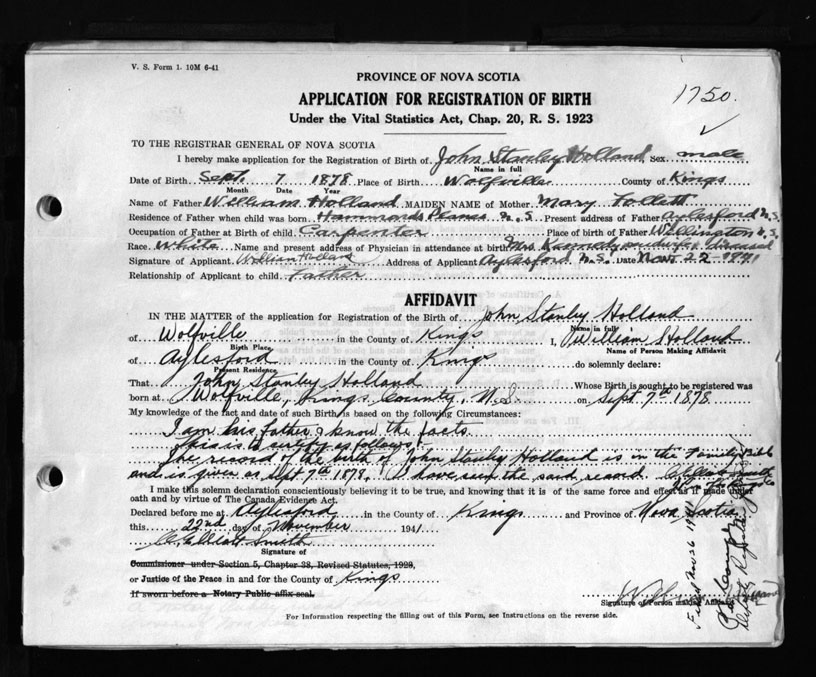 V. S. Form 1. 10M 6-41
PROVINCE OF NOVA SCOTIA
1750.
APPLICATION FOR REGISTRATION OF BIRTH
Under the Vital Statistics Act, Chap. 20, R. S. 1923
TO THE REGISTRAR GENERAL OF NOVA SCOTIA
I hereby make application for the Registration of Birth of John Stanley Holland Sex male
Name in full
Date of Birth Sept. 7 1878 Place of Birth Wolfville County of Kings
Month Date Year
Name of Father William Holland MAIDEN NAME of Mother Mary
Residence of Father when child was born Hammonds Plains N.S Present address of Father Aylesford N.S.
Occupation of Father at Birth of child Carpenter Place of birth of Father Wellington N.S.
Race White Name and present address of Physician in attendance at birth Mrs Kennedy midwife diseased
Signature of Applicant William Holland Address of Applicant Aylesford N.S. Date Nov 22 - 1941
Relationship of Applicant to child Father
AFFIDAVIT
IN THE MATTER of the application for Registration of the Birth of John Stanley Holland
Name in full
of Wolfville in the County of Kings I, William Holland
Birth Place Name of Person Making Affidavit
of Aylesford in the County of Kings do solemnly declare:
Present Residence
That John Stanley Holland Whose Birth is sought to be registered was
born at Wolfville, Kings County, N.S. on Sept 7th 1878.
My knowledge of the fact and date of such Birth is based on the following Circumstances:
I am his father & know the facts
This is to certify as follows:
The record of the birth of John Stanley Holland is in the Family Bible
and is given as Sept 7th 1878. I have seen the said record.
I make this solemn declaration conscientiously believing it to be true, and knowing that it is of the same force and effect as if made under
oath and by virtue of The Canada Evidence Act.
Declared before me at Aylesford in the County of Kings and Province of Nova Scotia
this 22nd day of November 1941
Elliott Smith
Signature of
Commissioner under Section 5, Chapter 38, Revised Statutes, 1923,
or Justice of the Peace in and for the County of Kings
If sworn before a Notary Public affix seal.
Signature of Person making Affidavit
For Information respecting the filling out of this Form, see Instructions on the reverse side.